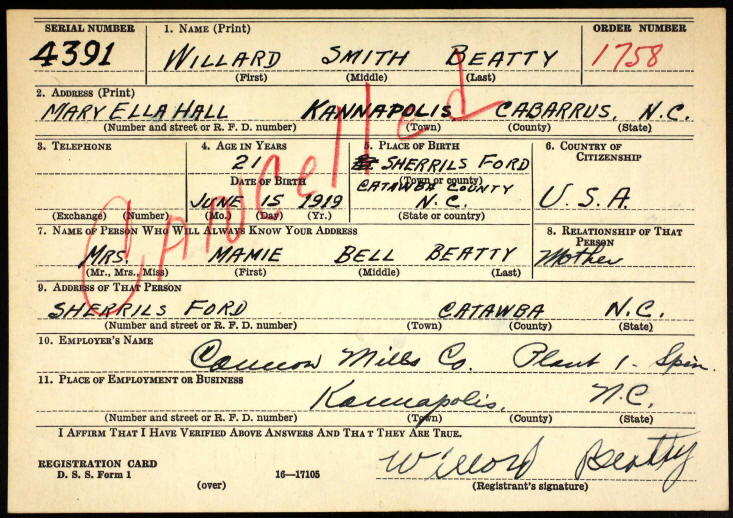 SERIAL NUMBER 1. NAME (Print) ORDER NUMBER
4391 WILLARD SMITH BEATTY 1758
(First) (Middle) (Last)
2. ADDRESS (Print)
MARY ELLA HALL KANNAPOLIS CABARRUS, N.C.
(Number and street or R. F. D. number) (Town) (County) (State)
3. TELEPHONE 4. AGE IN YEARS 5. PLACE OF BIRTH 6. COUNTRY OF CITIZENSHIP
21 SHERRILS FORD
(Town or county)
DATE OF BIRTH CATAWBA COUNTY
JUNE 15 1919 N.C. U.S.A.
(Exchange) (Number) (Mo.) (Day) (Yr.) (State or country)
CANCElled
7. NAME OF PERSON WHO WILL ALWAYS KNOW YOUR ADDRESS 8. RELATIONSHIP OF THAT PERSON
MRS. MAMIE BELL BEATTY Mother
(Mr., Mrs., Miss) (First) (Middle) (Last)
9. ADDRESS OF THAT PERSON
SHERRILS FORD CATAWBA N.C.
(Number and street or R. F. D. number) (Town) (County) (State)
10. EMPLOYER'S NAME
Cannon Mills Co. Plant 1 - Spin.
11. PLACE OF EMPLOYMENT OR BUSINESS
Kannapolis, N.C.
(Number and street or R. F. D. number) (Town) (County) (State)
I AFFIRM THAT I HAVE VERIFIED ABOVE ANSWERS AND THAT THEY ARE TRUE.
REGISTRATION CARD
D. S. S. Form 1 16—17105 Willard Beatty
(over) (Registrant's signature)